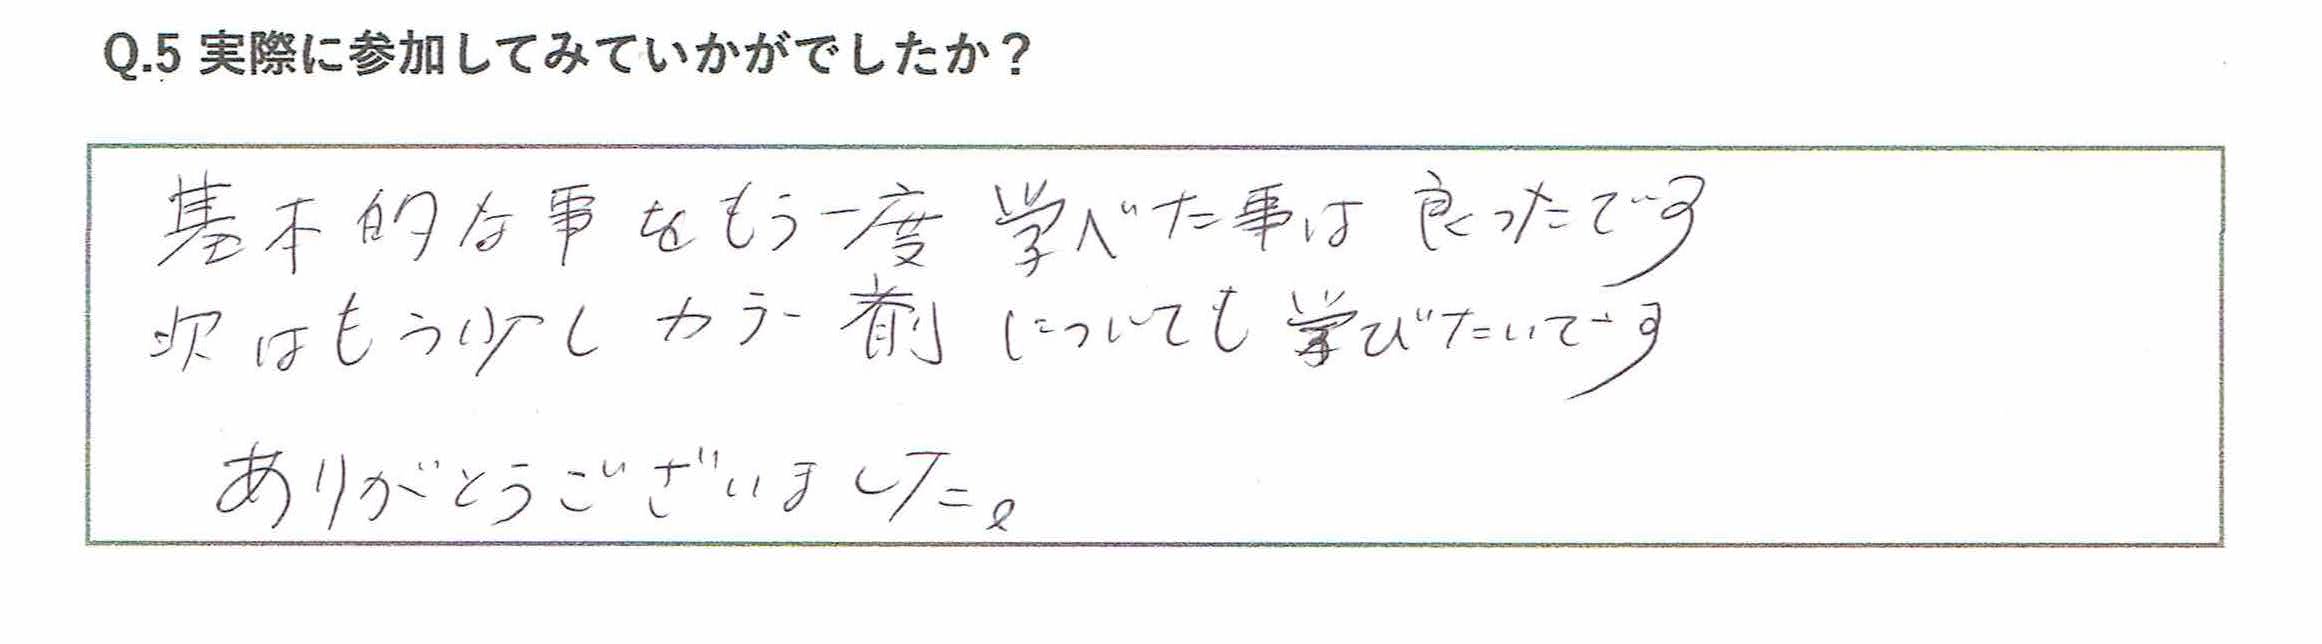 Q.5 実際に参加してみていかがでしたか？
基本的な事をもう一度 学べた事は 良ったです
次はもう少し カラー剤 についても 学びたいです
ありがとうございました。